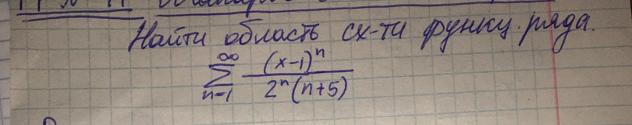 Найти область сх-ти функц. ряда.
∞
∑ (x-1)ⁿ / 2ⁿ(n+5)
n=1